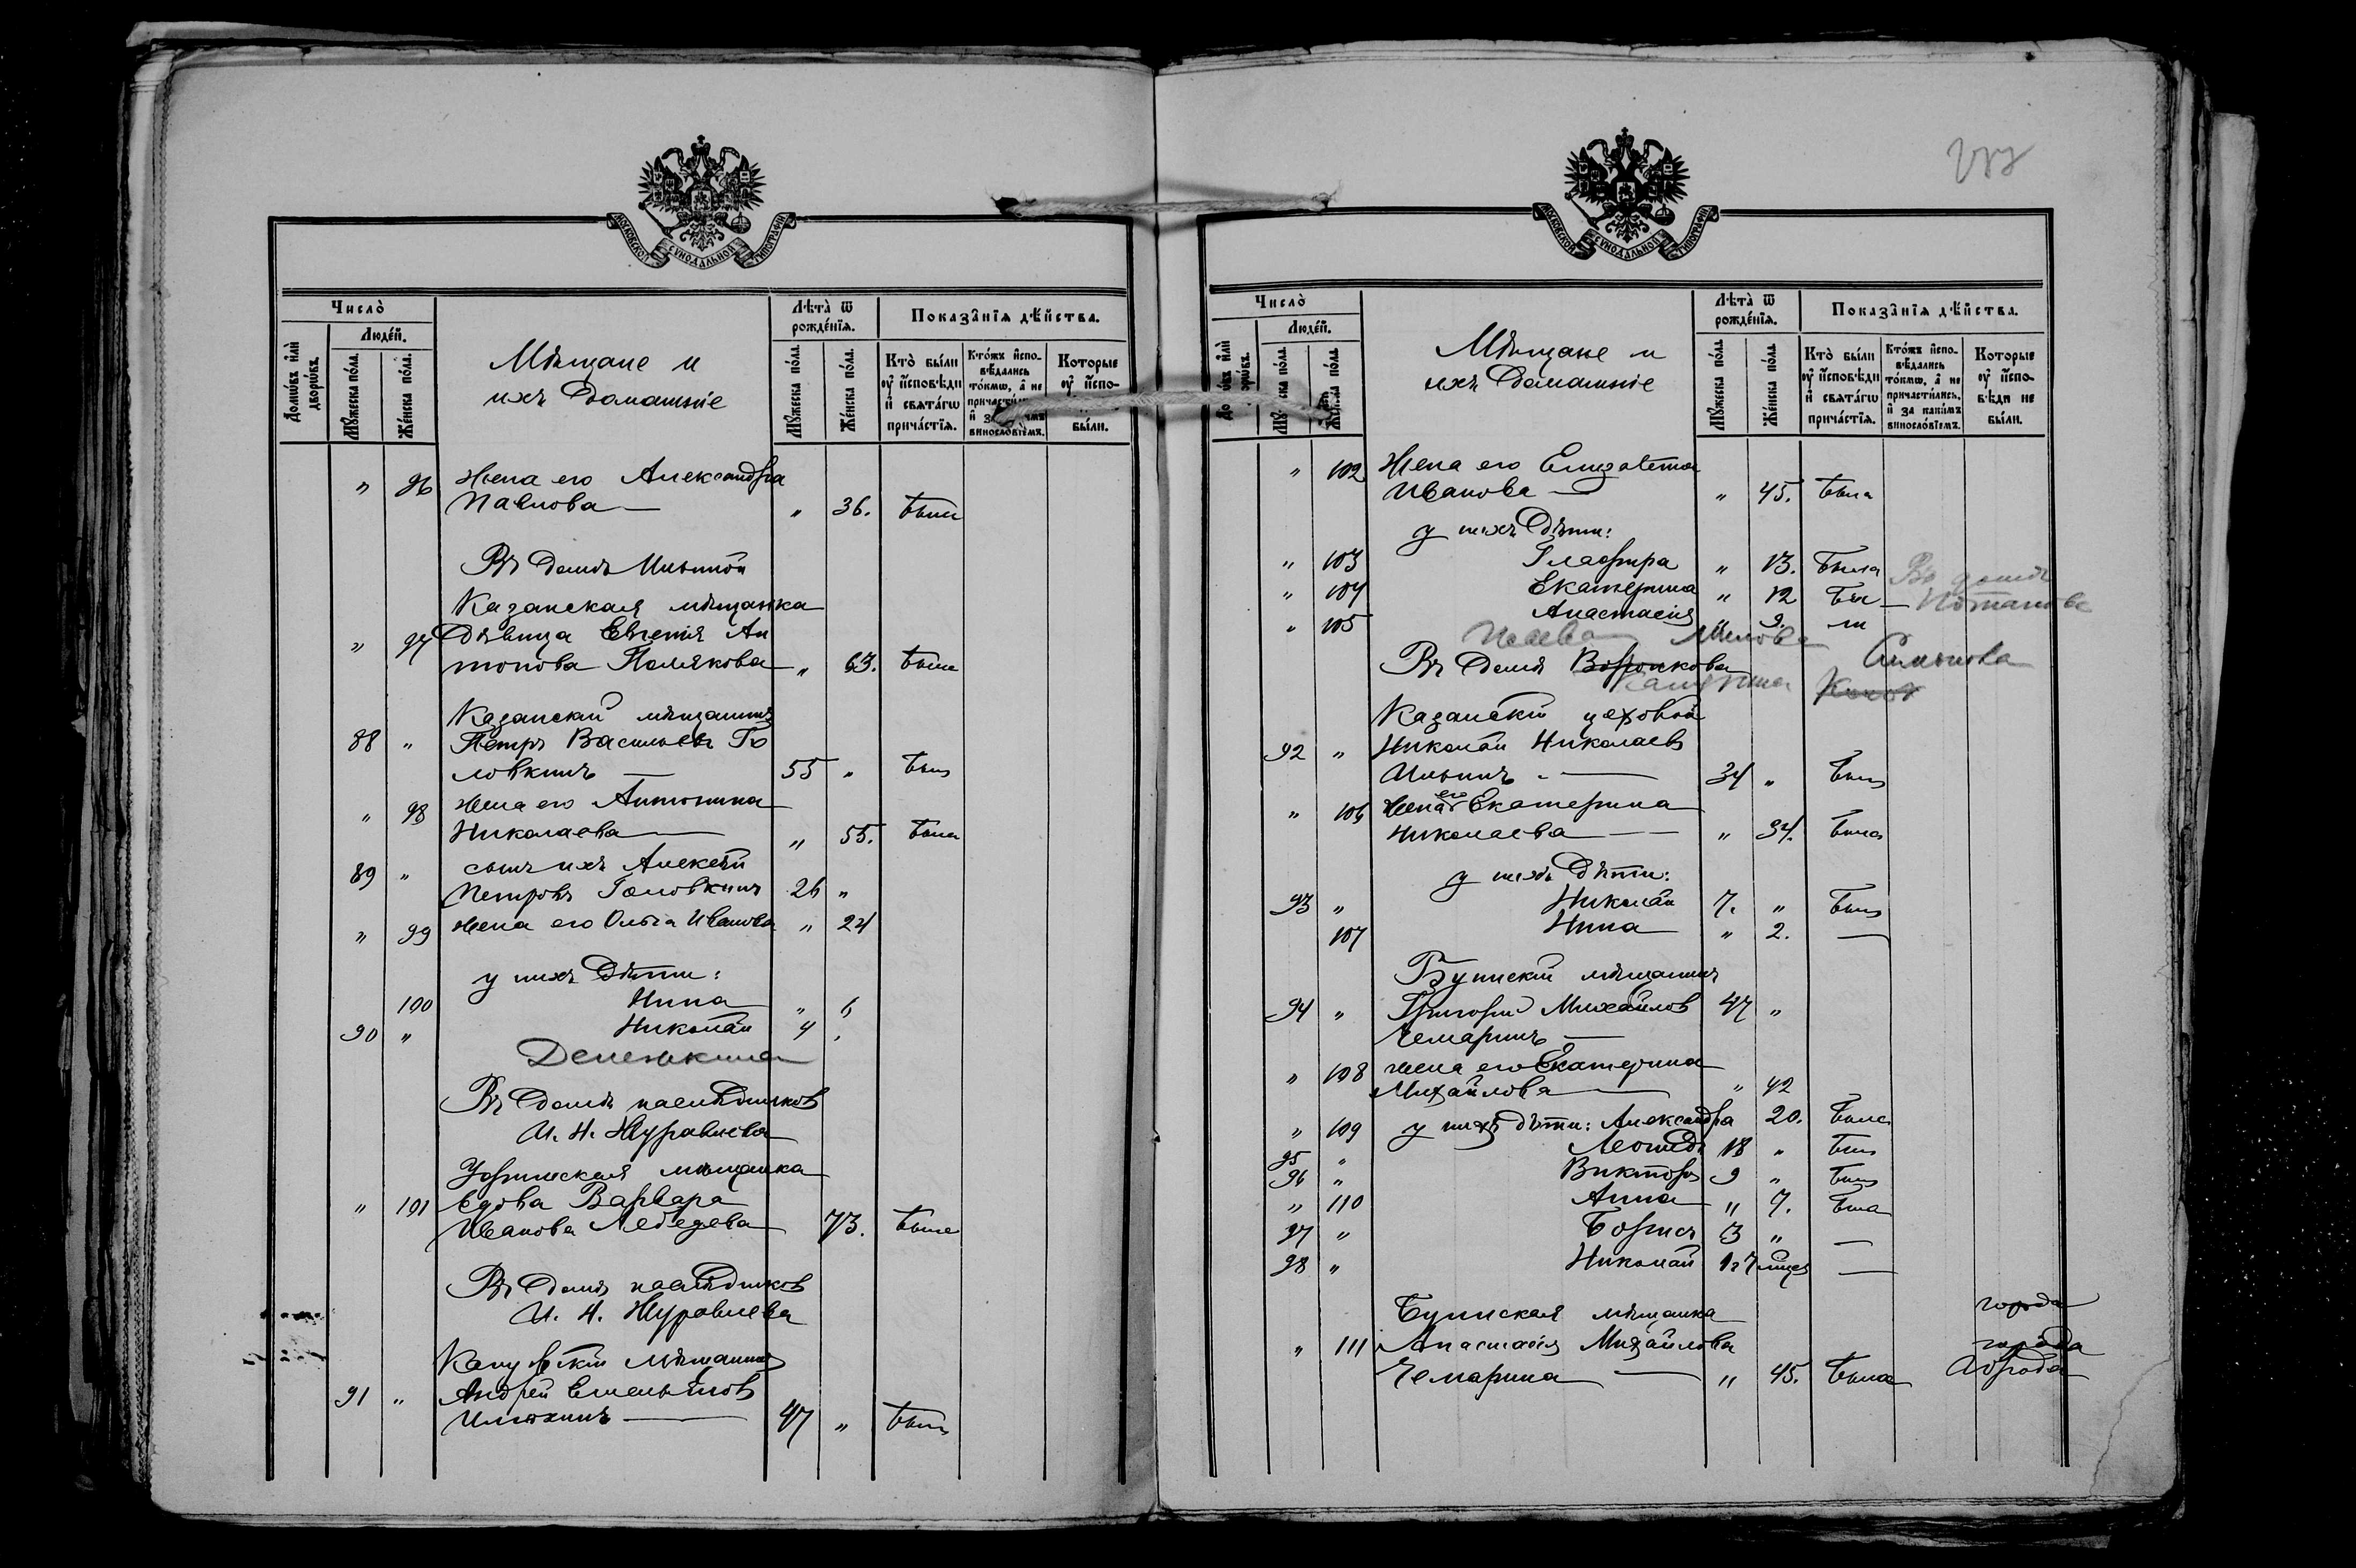 МОСКОВСКОЙ СѴНОДАЛЬНОЙ ТИПОГРАФІИ
Число̀
Людéй.
Домѡ́въ и҆лѝ дворѡ́въ.
Мꙋ́жеска по́ла.
Же́нска по́ла.
Мѣщане и
ихъ домашніе
Лѣта̀ ѿ рожде́нїѧ.
Мꙋ́жеска по́ла.
Же́нска по́ла.
Показа̑нїѧ дѣ́йства.
Кто̀ бы́ли ᲂу҆ и҆сповѣди и҆ свѧта́гѡ прича́стїѧ.
Кто́жъ и҆сповѣ́дались то́кмѡ, а҆ не причасти́лись, и҆ за каки́мъ винослові́емъ.
Которые ᲂу҆ и҆сповѣди не бы́ли.
" 96 Жена его Александра
Павлова — " 36. была
Въ домѣ Ильиной
Казанская мѣщанка
" 97 Дѣвица Евгенія Ан
тонова Полякова " 63. была
Казанскій мѣщанинъ
88 " Петръ Васильевъ Го
ловкинъ — 55 " былъ
" 98 Жена его Антонина
Николаева — " 55. была
89 " сынъ ихъ Алексѣй
Петровъ Головкинъ 26 "
" 99 Жена его Ольга Иванова " 24
у нихъ дѣти:
100 Нина " 6
90 " Николай 4 "
Денежкина
Въ домѣ наслѣдниковъ
И. Н. Журавлева
Уфимская мѣщанка
" 101 вдова Варвара
Иванова Лебедева 73. была
Въ домѣ наслѣдниковъ
И. Н. Журавлева
мѣщанинъ
91 " Андрей Емельяновъ
Илюхинъ — 47 " былъ
МОСКОВСКОЙ СѴНОДАЛЬНОЙ ТИПОГРАФІИ
Число̀
Людéй.
Домѡ́въ и҆лѝ дворѡ́въ.
Мꙋ́жеска по́ла.
Же́нска по́ла.
Мѣщане и
ихъ домашніе
Лѣта̀ ѿ рожде́нїѧ.
Мꙋ́жеска по́ла.
Же́нска по́ла.
Показа̑нїѧ дѣ́йства.
Кто̀ бы́ли ᲂу҆ и҆сповѣди и҆ свѧта́гѡ прича́стїѧ.
Кто́жъ и҆сповѣ́дались то́кмѡ, а҆ не причасти́лись, и҆ за каки́мъ винослові́емъ.
Которые ᲂу҆ и҆сповѣди не бы́ли.
" 102 Жена его Елизавета
Иванова — " 45. была
у нихъ дѣти:
" 103 Глафира " 13. была
" 104 Екатерина " 12 был —
" 105 Анастасія " 9.
Въ домѣ
Потапова
Въ домѣ Воронкова
Казанскій цеховой
92 " Николай Николаевъ
Ильинъ — 34 " былъ
" 106 Жена его Екатерина
Николаева — " 34. была
у нихъ дѣти:
93 " Николай 7. " былъ
107 Нина " 2. —
Буинскій мѣщанинъ
94 " Григорій Михайлов 47 "
Чемаринъ —
" 108 жена его Екатерина
Михайлова — " 42
" 109 у нихъ дѣти: Александра 20. была
95 " Леонидъ 18 " былъ
96 " Викторъ 9 " былъ
" 110 Анна " 7. была
97 " Борисъ 3 " —
98 " Николай —
Буинская мѣщанка
" 111 Анастасія Михайлова
Чемарина — " 45. была
города
города